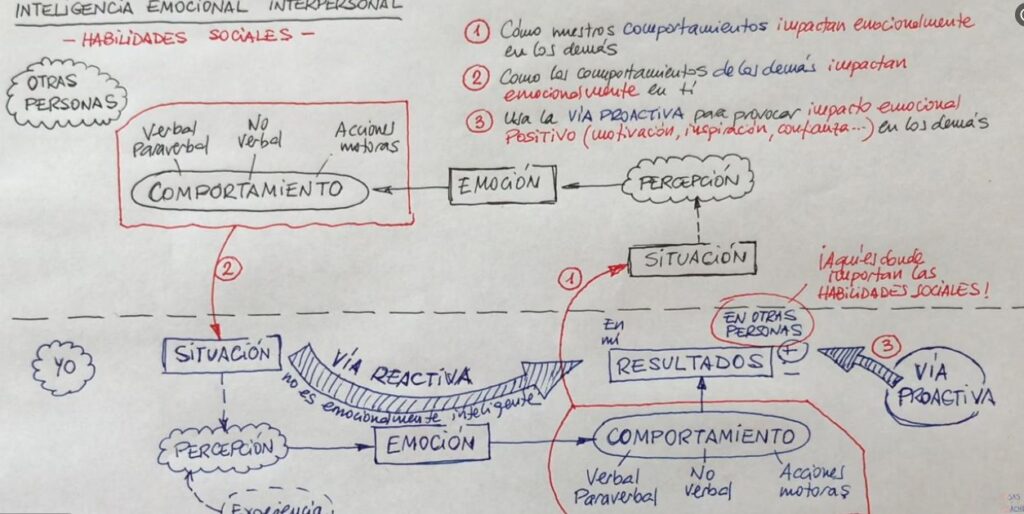 INTELIGENCIA EMOCIONAL INTERPERSONAL
- HABILIDADES SOCIALES -
① Cómo nuestros comportamientos impactan emocionalmente
en los demás
② Como los comportamientos de los demás impactan
emocionalmente en ti
③ Usa la VÍA PROACTIVA para provocar impacto emocional
POSITIVO (motivación, inspiración, confianza...) en los demás
OTRAS
PERSONAS
Verbal
Paraverbal
No
verbal
Acciones
motoras
COMPORTAMIENTO
EMOCIÓN
PERCEPCIÓN
SITUACIÓN
¡Aquí es donde
importan las
HABILIDADES SOCIALES!
②
①
EN OTRAS
PERSONAS
En
mí
YO
SITUACIÓN
VÍA REACTIVA
no es emocionalmente inteligente
RESULTADOS
+
-
③
VÍA
PROACTIVA
PERCEPCIÓN
EMOCIÓN
COMPORTAMIENTO
Verbal
Paraverbal
No
verbal
Acciones
motoras
Experiencia